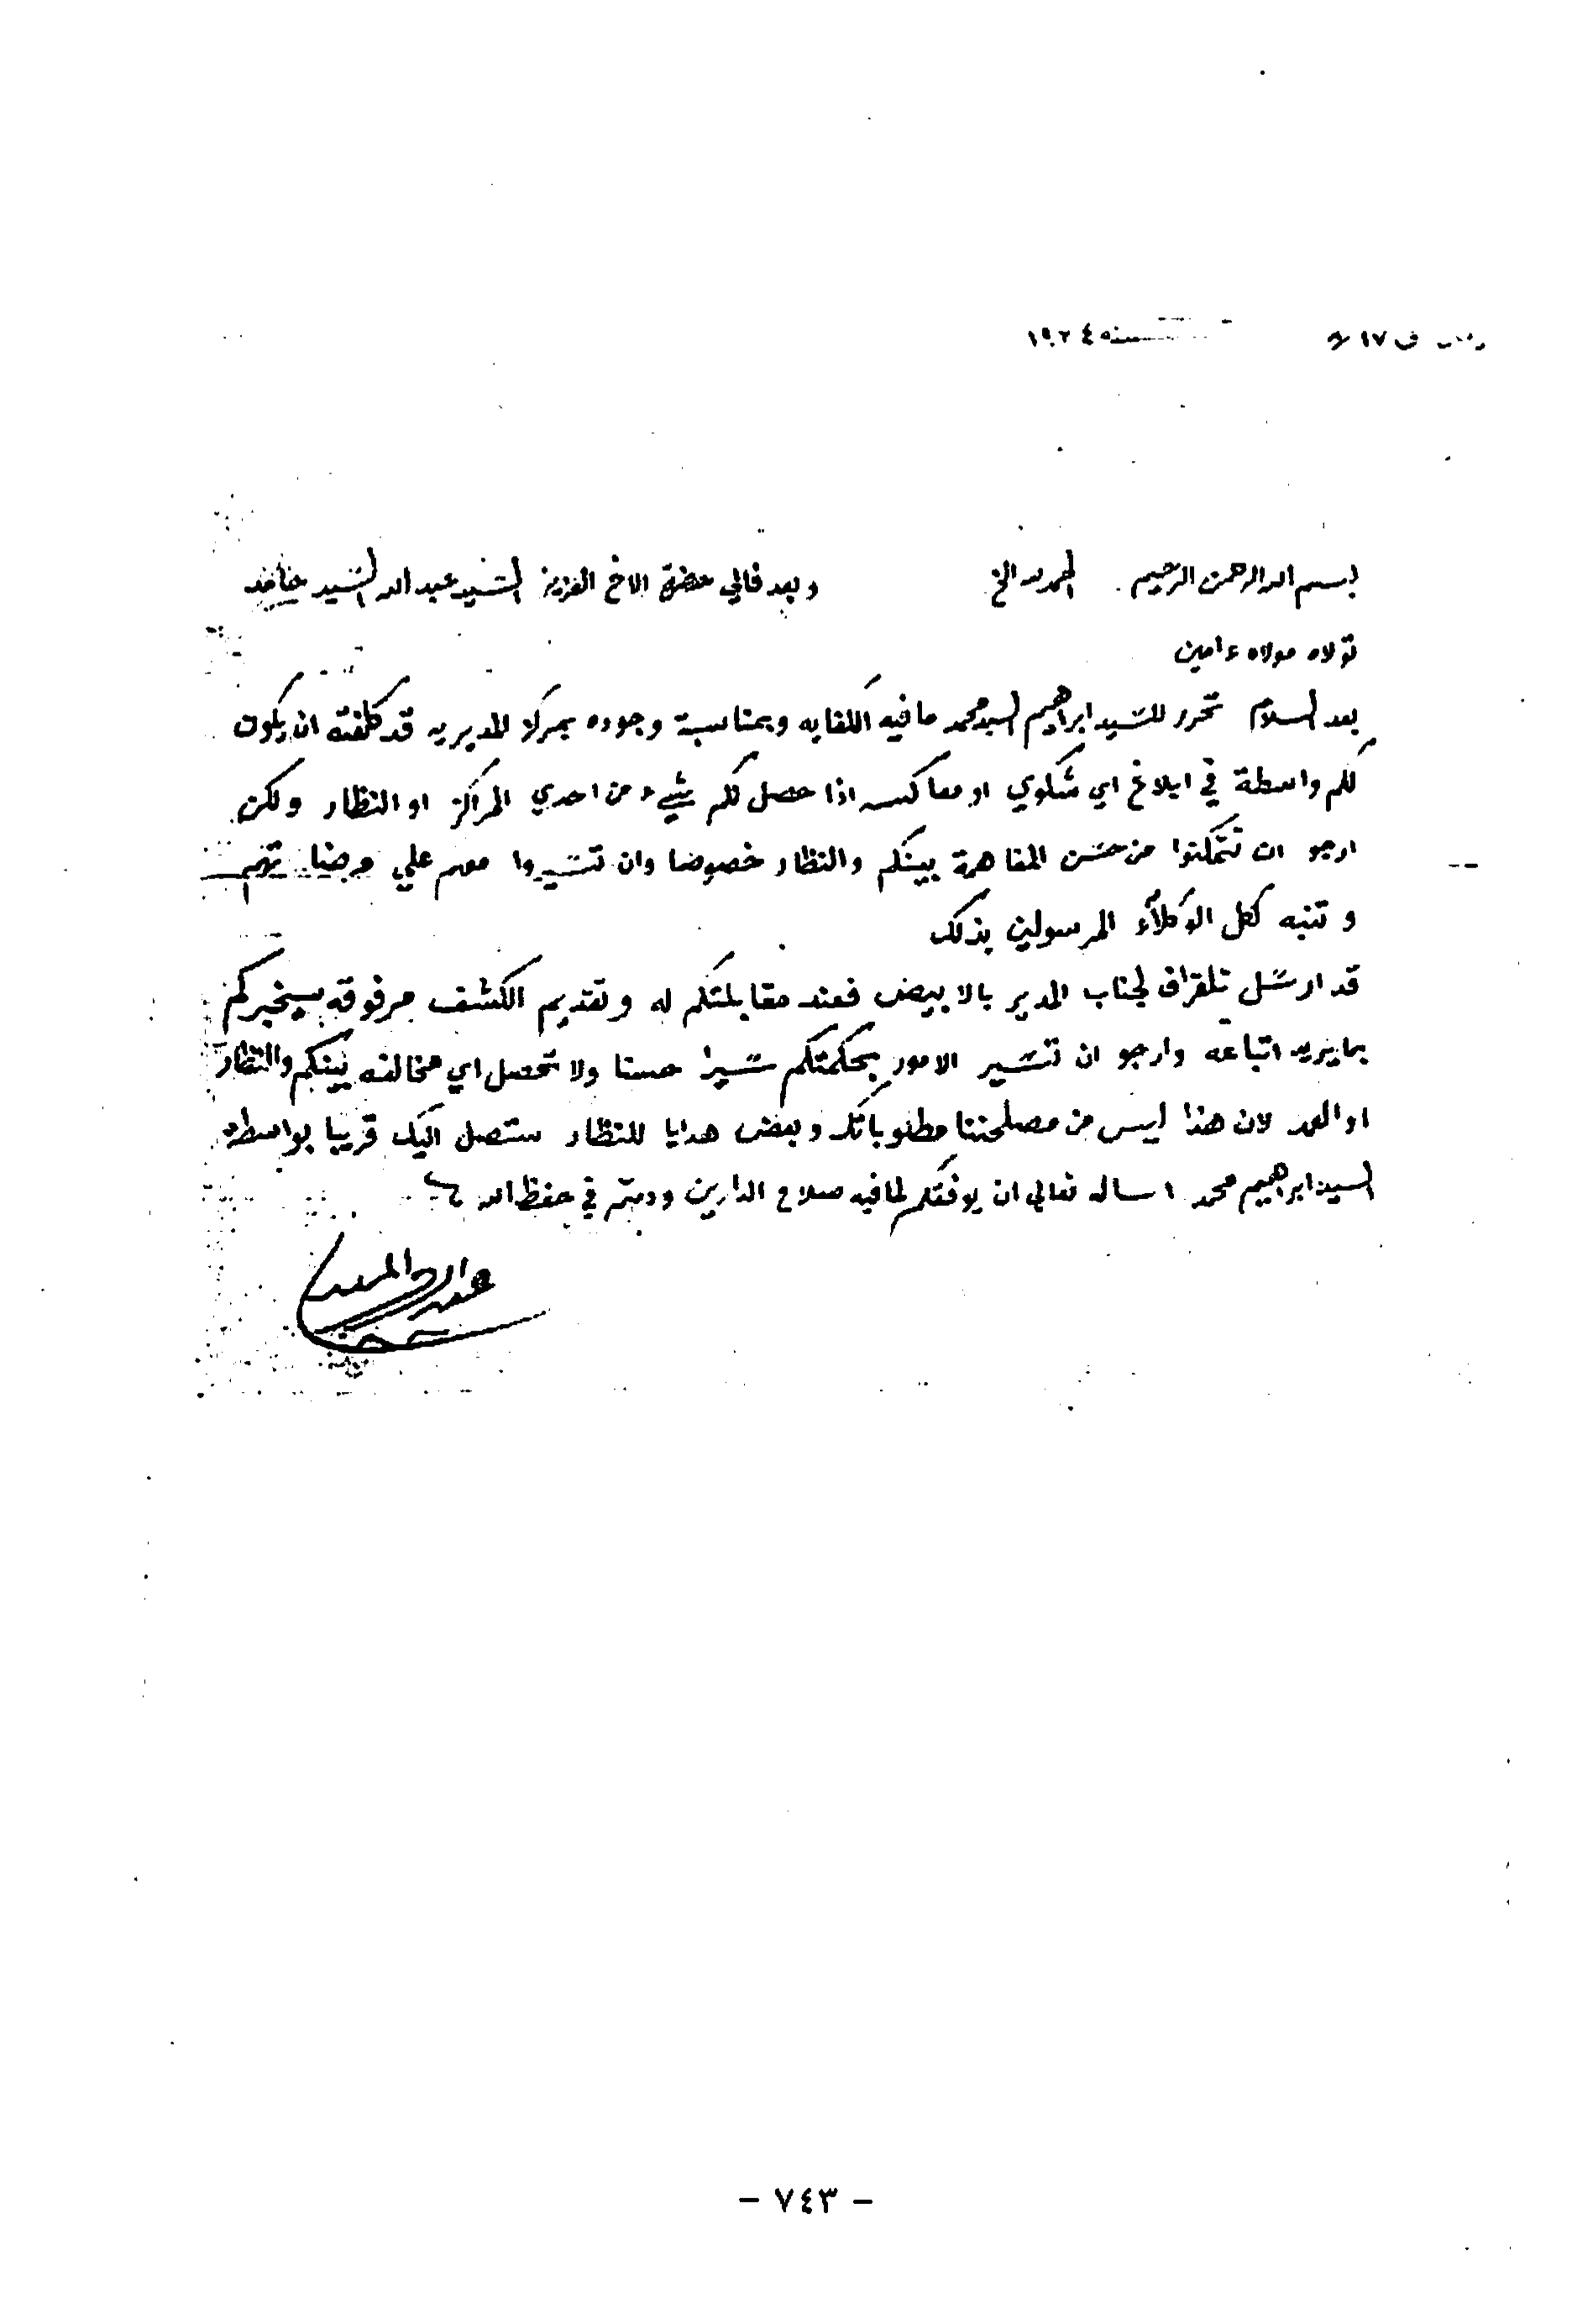 في ١٧ سنه ١٩٢٤
بسم الله الرحمن الرحيم الحمد لله الخ وبعد فالي حضرة الاخ العزيز السيد عبد الله السيد حامد
تولاه مولاه ءامين
بعد السلام تحرر للسيد ابراهيم السيد محمد ما فيه الكفايه وبمناسبة وجوده بمركز المديريه قد كلفته ان يكون
لكم واسطة في ابلاغ اي شكوي او معاكسه اذا حصل لكم شيء من احدي المراكز او النظار ولكن
ارجو ان تتمكنوا من حسن المفاهمة بينكم والنظار خصوصا وان تسيروا معهم علي مرضاتهم
وتنبه لكل الوكلآء المرسولين بذلك
قد ارسل تلغراف لجناب المدير بالابيض فعند مقابلتكم له وتقديم الكشف مرفوقه سيخبركم
بما يريد اتباعه وارجو ان تسير الامور بحكمتكم سيرا حسنا ولا تحصل اي مخالفه بينكم والنظار
او العمد لان هذا ليس من مصلحتنا مطلوباتك وبعض هدايا للنظار ستصل اليك قريبا بواسطة
السيد ابراهيم محمد اساله تعالي ان يوفقكم لما فيه صلاح الدارين ودمتم في حفظ الله
عبد الرحمن المهدي
- ٧٤٣ -